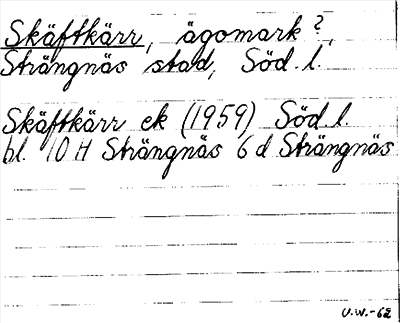 Skäftkärr, ägomark?,
Strängnäs stad, Söd l.
Skäftkärr ek (1959) Söd l.
bl. 10 H Strängnäs 6 d Strängnäs
U.W.-62